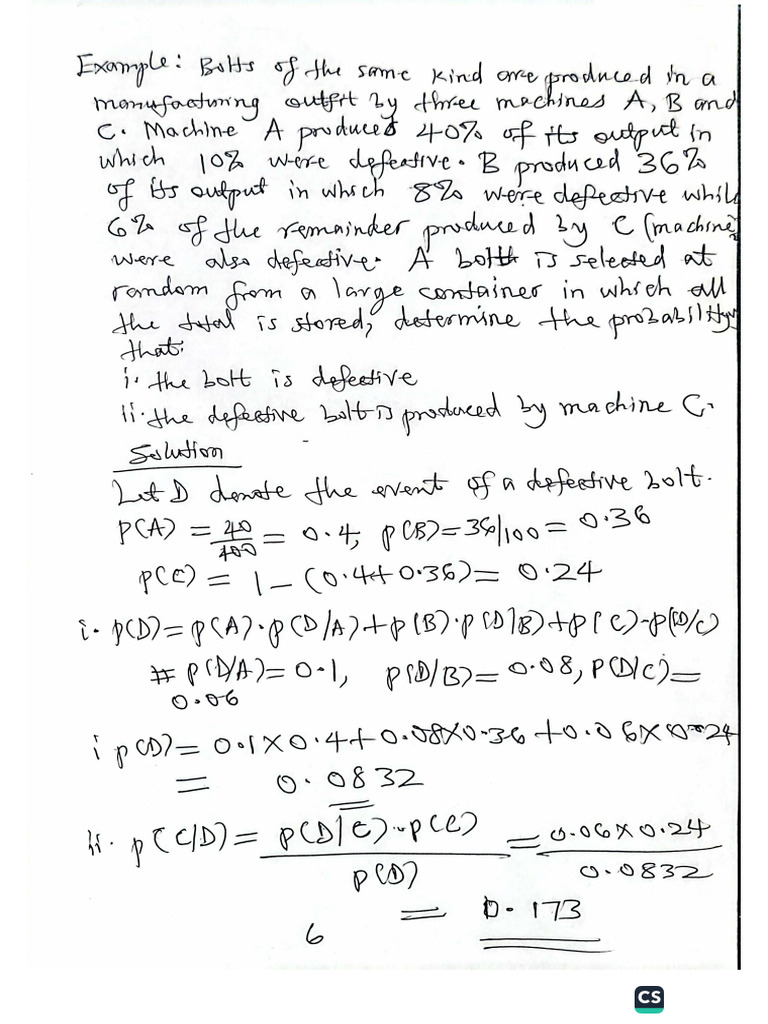 Example: Bolts of the same kind are produced in a
manufacturing outfit by three machines A, B and
C. Machine A produced 40% of its output in
which 10% were defective. B produced 36%
of its output in which 8% were defective while
6% of the remainder produced by C (machine)
were also defective. A bolt is selected at
random from a large container in which all
the total is stored, determine the probability
that:
i. the bolt is defective
ii. the defective bolt is produced by machine C.
Solution
Let D denote the event of a defective bolt.
P(A) = 40/100 = 0.4, P(B) = 36/100 = 0.36
P(C) = 1 - (0.4+0.36) = 0.24
i. P(D) = P(A).P(D/A) + P(B).P(D/B) + P(C).P(D/C)
# P(D/A) = 0.1, P(D/B) = 0.08, P(D/C) =
0.06
i P(D) = 0.1 × 0.4 + 0.08 × 0.36 + 0.06 × 0.24
= 0.0832
ii. P(C/D) = P(D/C).P(C) / P(D) = 0.06 × 0.24 / 0.0832
= 0.173
6
CS